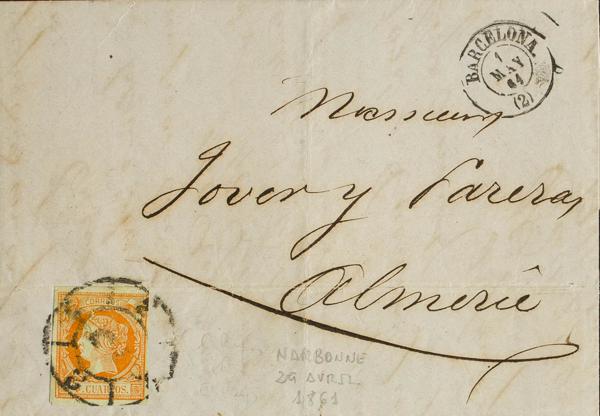 BARCELONA.
1
MAY
(2)
Messieurs
Jover y Parera
Almerie
CORREOS
CUARTOS.
NARBONNE
29 AVRIL
1861